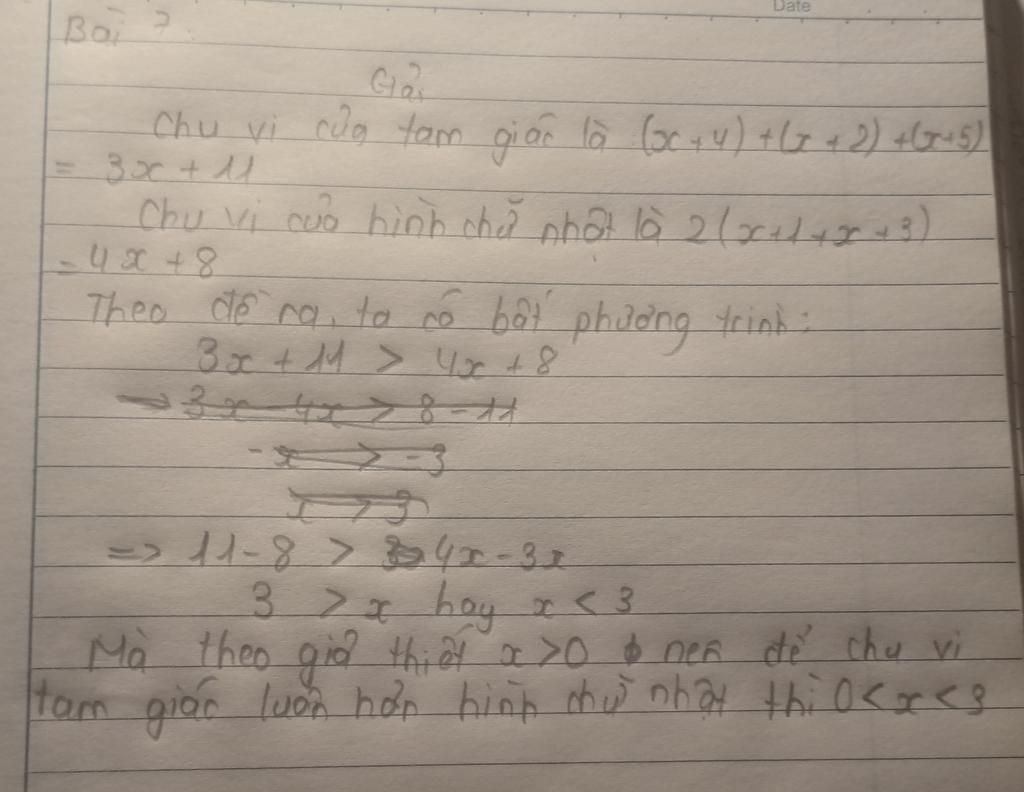 Date
Bài 7.
Giải
Chu vi của tam giác là (x+4)+(x+2)+(x+5)
= 3x + 11
Chu vi của hình chữ nhật là 2(x+1+x+3)
= 4x + 8
Theo đề ra, ta có bất phương trình:
3x + 11 > 4x + 8
→ 3x - 4x > 8 - 11
-x > -3
x > 3
=> 11 - 8 > 4x - 3x
3 > x hay x < 3
Mà theo giả thiết x > 0 nên để chu vi
tam giác luôn hơn hình chữ nhật thì 0 < x < 3